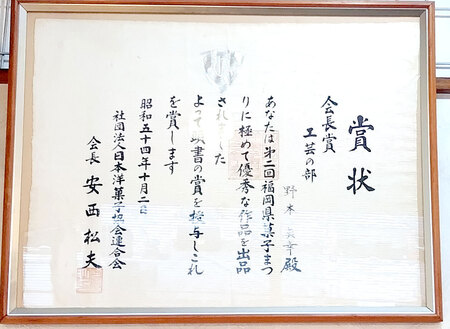 賞状
会長賞
工芸の部
野本 幸殿
あなたは第二回福岡県菓子まつ
りに極めて優秀な作品を出品
されました
よって 書の賞を授与しこれ
を賞します
昭和五十四年十月二 日
社団法人日本洋菓子協会連合会
会長 安西松夫